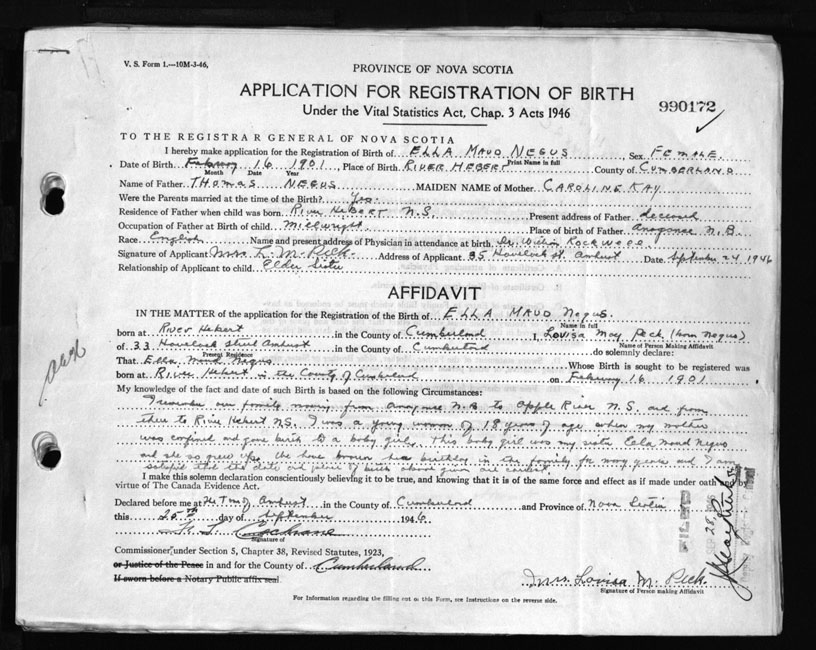 V. S. Form 1.—10M-3-46,
PROVINCE OF NOVA SCOTIA
APPLICATION FOR REGISTRATION OF BIRTH
Under the Vital Statistics Act, Chap. 3 Acts 1946
990172
TO THE REGISTRAR GENERAL OF NOVA SCOTIA
I hereby make application for the Registration of Birth of ELLA MAUD NEGUS Sex FEMALE
Print Name in full
Date of Birth February 16 1901 Place of Birth RIVER HEBERT County of CUMBERLAND
Month Date Year
Name of Father THOMAS NEGUS MAIDEN NAME of Mother CAROLINE KAY
Were the Parents married at the time of the Birth? Yes.
Residence of Father when child was born River Hebert N.S. Present address of Father deceased
Occupation of Father at Birth of child Millwright Place of Birth of Father N.B.
Race English Name and present address of Physician in attendance at birth Dr. Rockwell
Signature of Applicant Mrs L. M. Peck. Address of Applicant 35 Havelock St. Amherst Date September 24 1946
Relationship of Applicant to child Elder Sister
AFFIDAVIT
IN THE MATTER of the application for the Registration of the Birth of ELLA MAUD Negus.
Name in full
born at River Hebert in the County of Cumberland I, Lovisa May Peck (born Negus)
Name of Person Making Affidavit
of 33 Havelock Street Amherst in the County of Cumberland do solemnly declare:
Present Residence
That Ella Maud Negus Whose Birth is sought to be registered was
born at River Hebert in the County of Cumberland on February 16 1901
My knowledge of the fact and date of such Birth is based on the following Circumstances:
I remember our family moving from N.B. to Apple River N.S. and from
there to River Hebert NS. I was a young woman of 18 years of age when my mother
was confined and gave birth to a baby girl. This baby girl was my sister Ella Maud Negus
and she so grew up. birthday in the family for many years and I am
satisfied that the date and place of birth above given are correct
I make this solemn declaration conscientiously believing it to be true, and knowing that it is of the same force and effect as if made under oath by
virtue of The Canada Evidence Act.
Declared before me at the Town of Amherst in the County of Cumberland and Province of Nova Scotia
this 25th day of September 1946
Cochrane
Signature of
Commissioner, under Section 5, Chapter 38, Revised Statutes, 1923,
or Justice of the Peace in and for the County of Cumberland
If sworn before a Notary Public affix seal
Mrs. Lovisa M. Peck.
Signature of Person making Affidavit
For Information regarding the filling out of this Form, see Instructions on the reverse side.
FILED